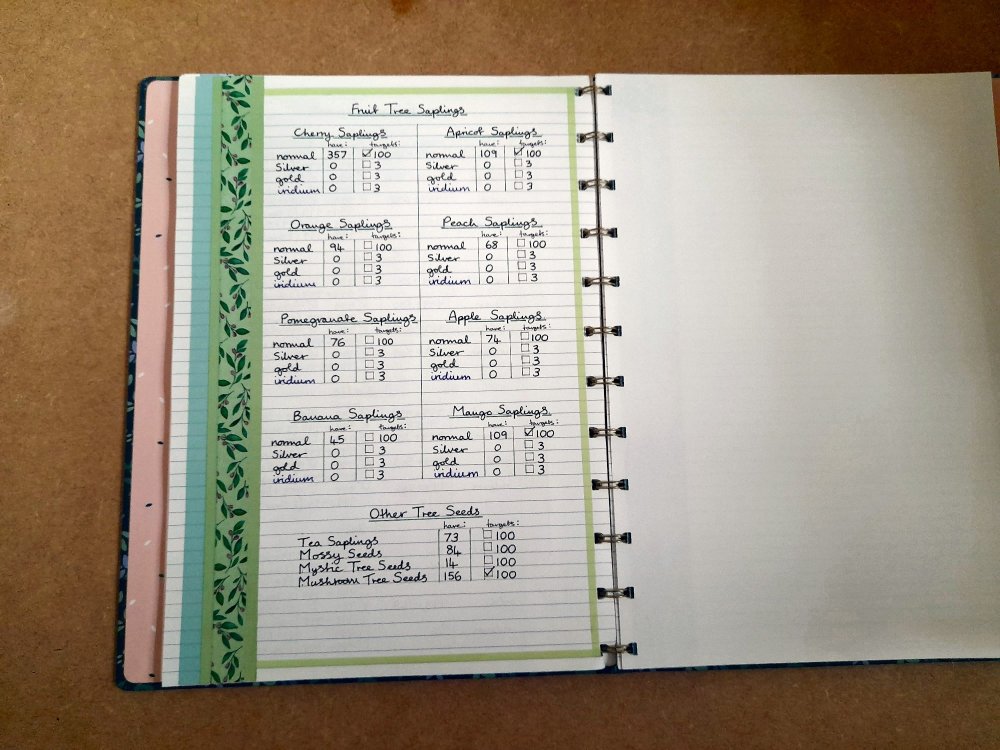 Fruit Tree Saplings
Cherry Saplings
have: targets:
normal 357 ☑100
Silver 0 ☐3
gold 0 ☐3
iridium 0 ☐3
Apricot Saplings
have: targets:
normal 109 ☑100
Silver 0 ☐3
gold 0 ☐3
iridium 0 ☐3
Orange Saplings
have: targets:
normal 94 ☐100
Silver 0 ☐3
gold 0 ☐3
iridium 0 ☐3
Peach Saplings
have: targets:
normal 68 ☐100
Silver 0 ☐3
gold 0 ☐3
iridium 0 ☐3
Pomegranate Saplings
have: targets:
normal 76 ☐100
Silver 0 ☐3
gold 0 ☐3
iridium 0 ☐3
Apple Saplings
have: targets:
normal 74 ☐100
Silver 0 ☐3
gold 0 ☐3
iridium 0 ☐3
Banana Saplings
have: targets:
normal 45 ☐100
Silver 0 ☐3
gold 0 ☐3
iridium 0 ☐3
Mango Saplings
have: targets:
normal 109 ☑100
Silver 0 ☐3
gold 0 ☐3
iridium 0 ☐3
Other Tree Seeds
have: targets:
Tea Saplings 73 ☐100
Mossy Seeds 84 ☐100
Mystic Tree Seeds 14 ☐100
Mushroom Tree Seeds 156 ☑100